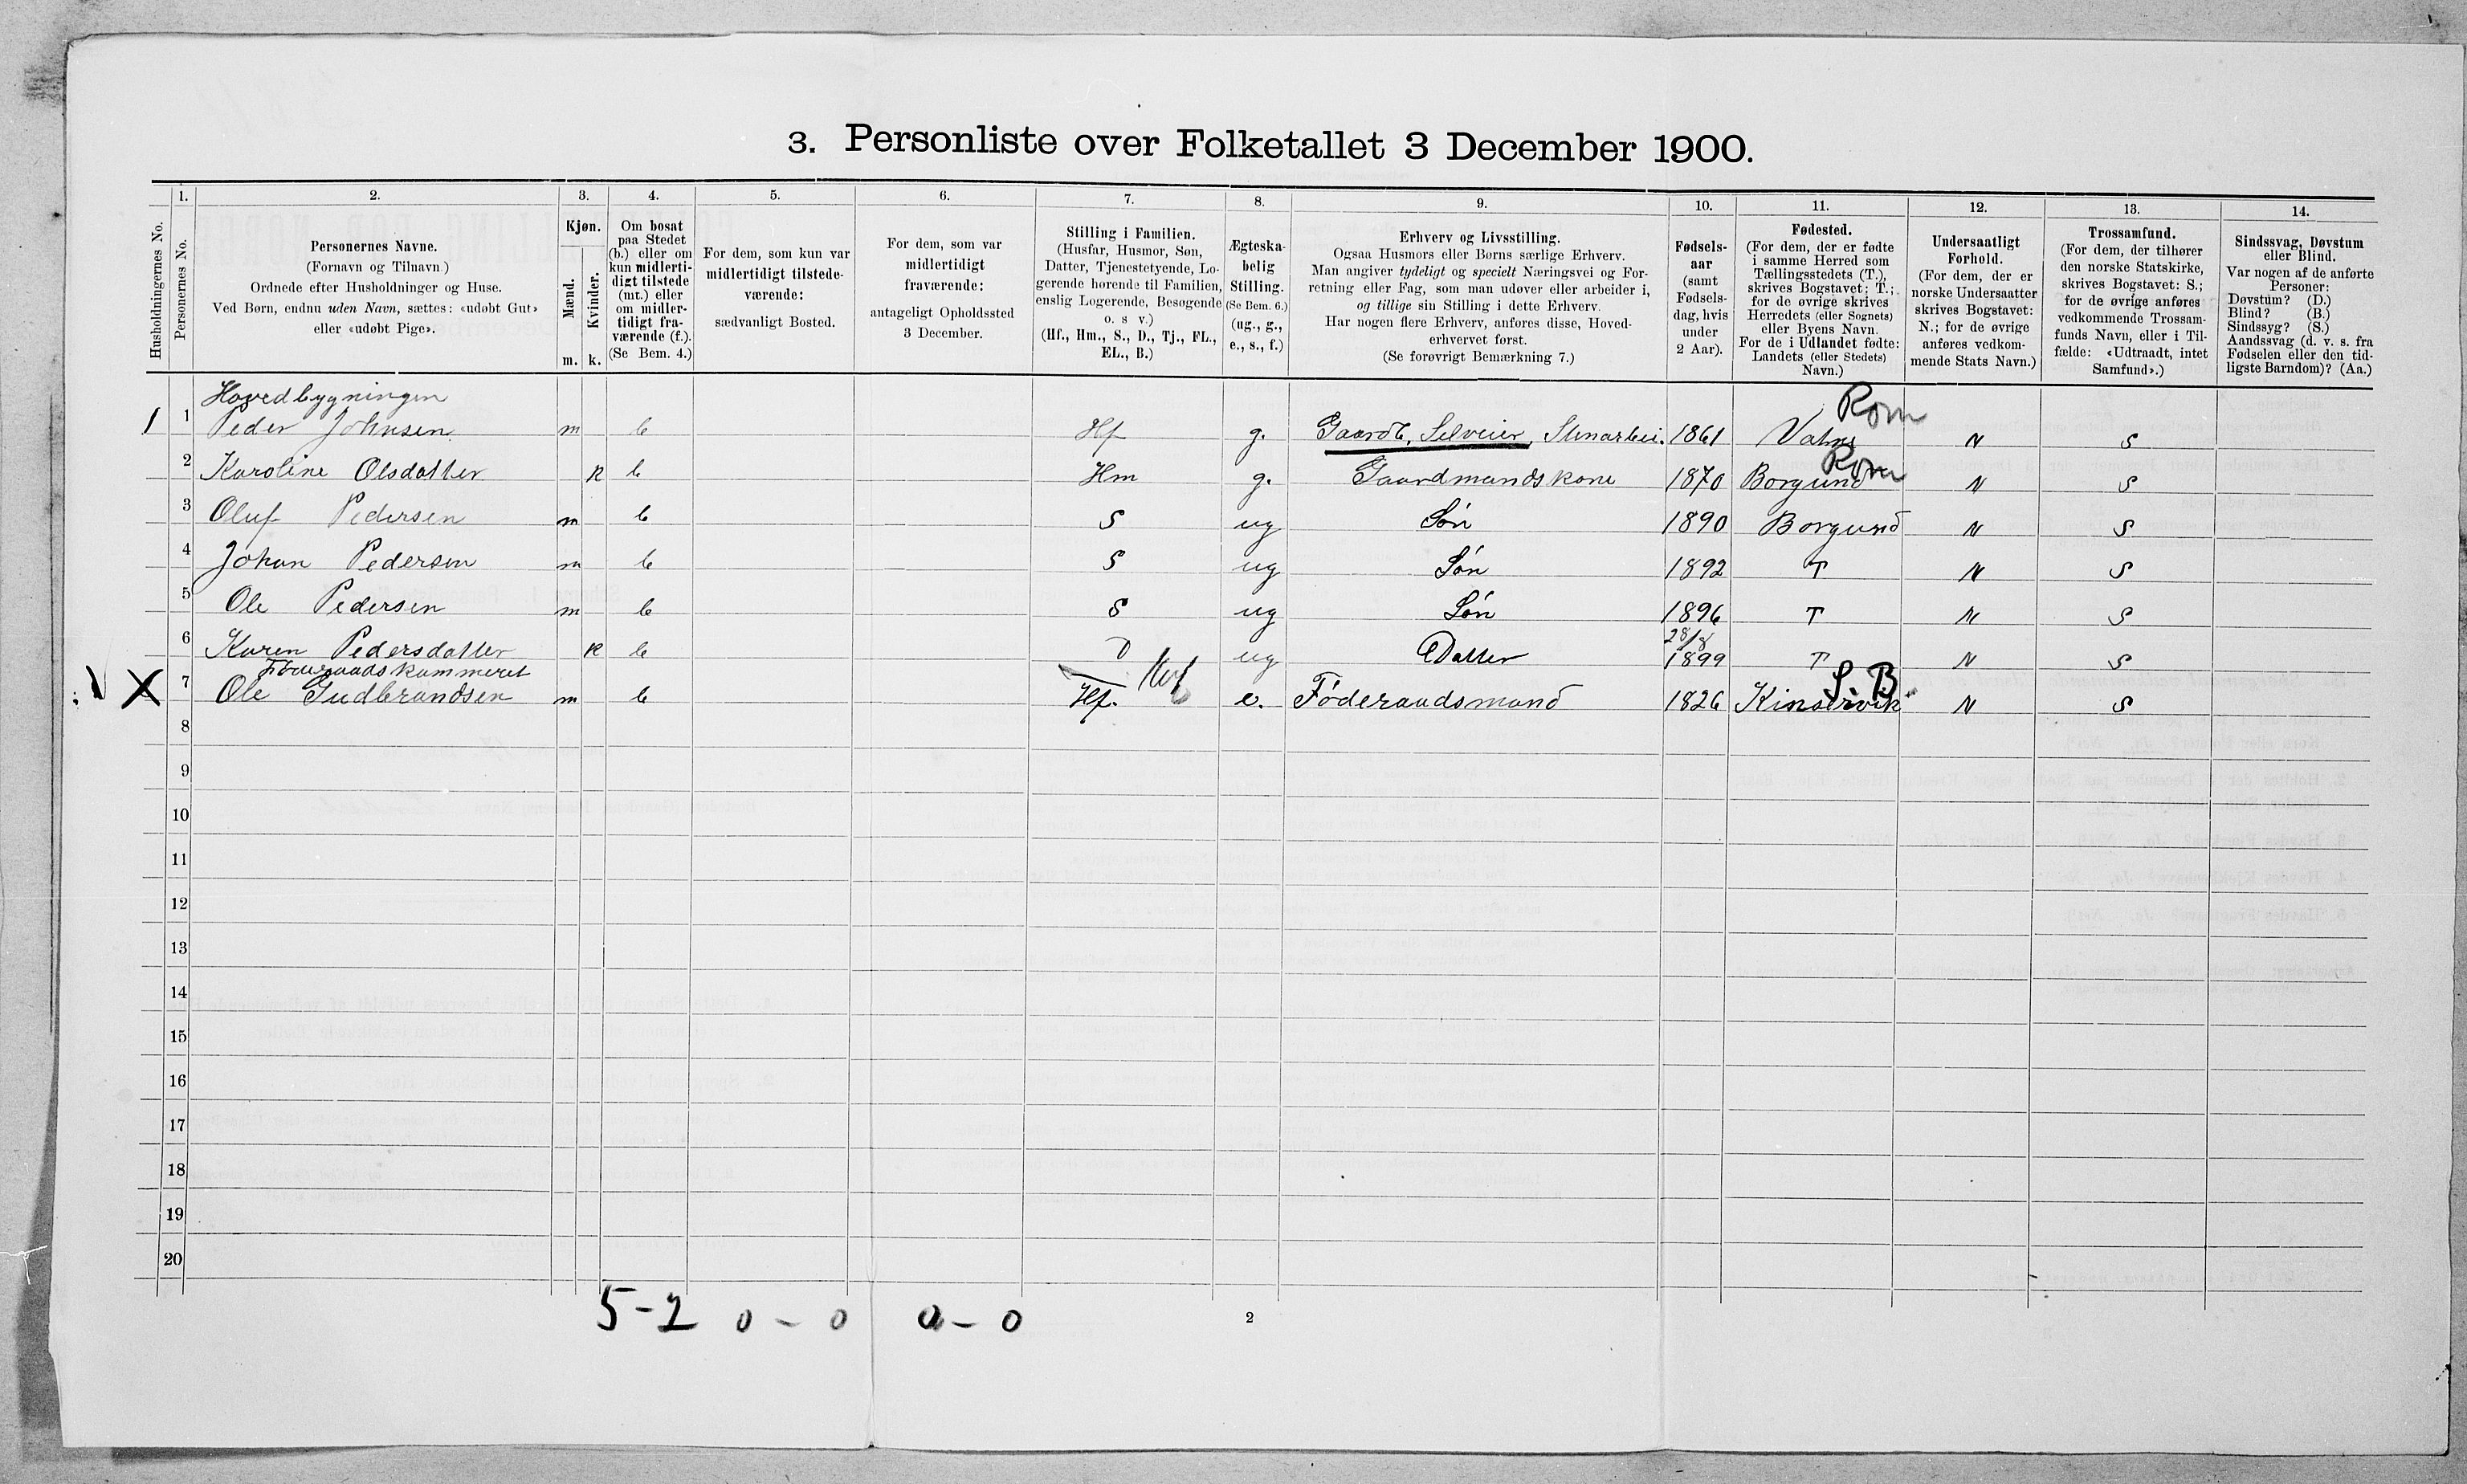 3. Personliste over Folketallet 3 December 1900.
1. 2. 3. 4. 5. 6. 7. 8. 9. 10. 11. 12. 13. 14.
Husholdningernes No.
Personernes No.
Personernes Navne.
(Fornavn og Tilnavn.)
Ordnede efter Husholdninger og Huse.
Ved Børn, endnu uden Navn, sættes: «udøbt Gut»
eller «udøbt Pige».
Kjøn.
Mænd.
Kvinder.
m. k.
Om bosat
paa Stedet
(b.) eller om
kun midlerti-
digt tilstede
(mt.) eller
om midler-
tidigt fra-
værende (f.).
(Se Bem. 4.)
For dem, som kun var
midlertidigt tilstede-
værende:
sædvanligt Bosted.
For dem, som var
midlertidigt
fraværende:
antageligt Opholdssted
3 December.
Stilling i Familien.
(Husfar, Husmor, Søn,
Datter, Tjenestetyende, Lo-
gerende hørende til Familien,
enslig Logerende, Besøgende
o. s v.)
(Hf., Hm., S., D., Tj., FL.,
EL., B.)
Ægteska-
belig
Stilling.
(Se Bem. 6.)
(ug., g.,
e., s., f.)
Erhverv og Livsstilling.
Ogsaa Husmors eller Børns særlige Erhverv.
Man angiver tydeligt og specielt Næringsvei og For-
retning eller Fag, som man udøver eller arbeider i,
og tillige sin Stilling i dette Erhverv.
Har nogen flere Erhverv, anføres disse, Hoved-
erhvervet først.
(Se forøvrigt Bemærkning 7.)
Fødsels-
aar
(samt
Fødsels-
dag, hvis
under
2 Aar).
Fødested.
(For dem, der er fødte
i samme Herred som
Tællingsstedets (T.),
skrives Bogstavet; T.;
for de øvrige skrives
Herredets (eller Sognets)
eller Byens Navn.
For de i Udlandet fødte:
Landets (eller Stedets)
Navn.)
Undersaatligt
Forhold.
(For dem, der er
norske Undersaatter
skrives Bogstavet:
N.; for de øvrige
anføres vedkom-
mende Stats Navn.)
Trossamfund.
(For dem, der tilhører
den norske Statskirke,
skrives Bogstavet: S.;
for de øvrige anføres
vedkommende Trossam-
funds Navn, eller i Til-
fælde: «Udtraadt, intet
Samfund».)
Sindssvag, Døvstum
eller Blind.
Var nogen af de anførte
Personer:
Døvstum? (D.)
Blind? (B.)
Sindssyg? (S.)
Aandssvag (d. v. s. fra
Fødselen eller den tid-
ligste Barndom)? (Aa.)
Hovedbygningen
Rom
1 1 Peder Johnsen m b Hf g. Gaardb, Selveier, Stenarbei. 1861 N S
Rom
2 Karoline Olsdatter k b Hm g. Gaardmandskone 1870 Borgund N S
3 Oluf Pedersen m b S ug Søn 1890 Borgund N S
4 Johan Pedersen m b S ug Søn 1892 T N S
5 Ole Pedersen m b S ug Søn 1896 T N S
28/8
6 Karen Pedersdatter k b D ug Datter 1899 T N S
Føderaadskammeret
S. B.
X 7 Ole Gudbrandsen m b Hf. e. Føderaadsmand 1826 Kinservik N S
8
9
10
11
12
13
14
15
16
17
18
19
20
5-2 0-0 0-0
2